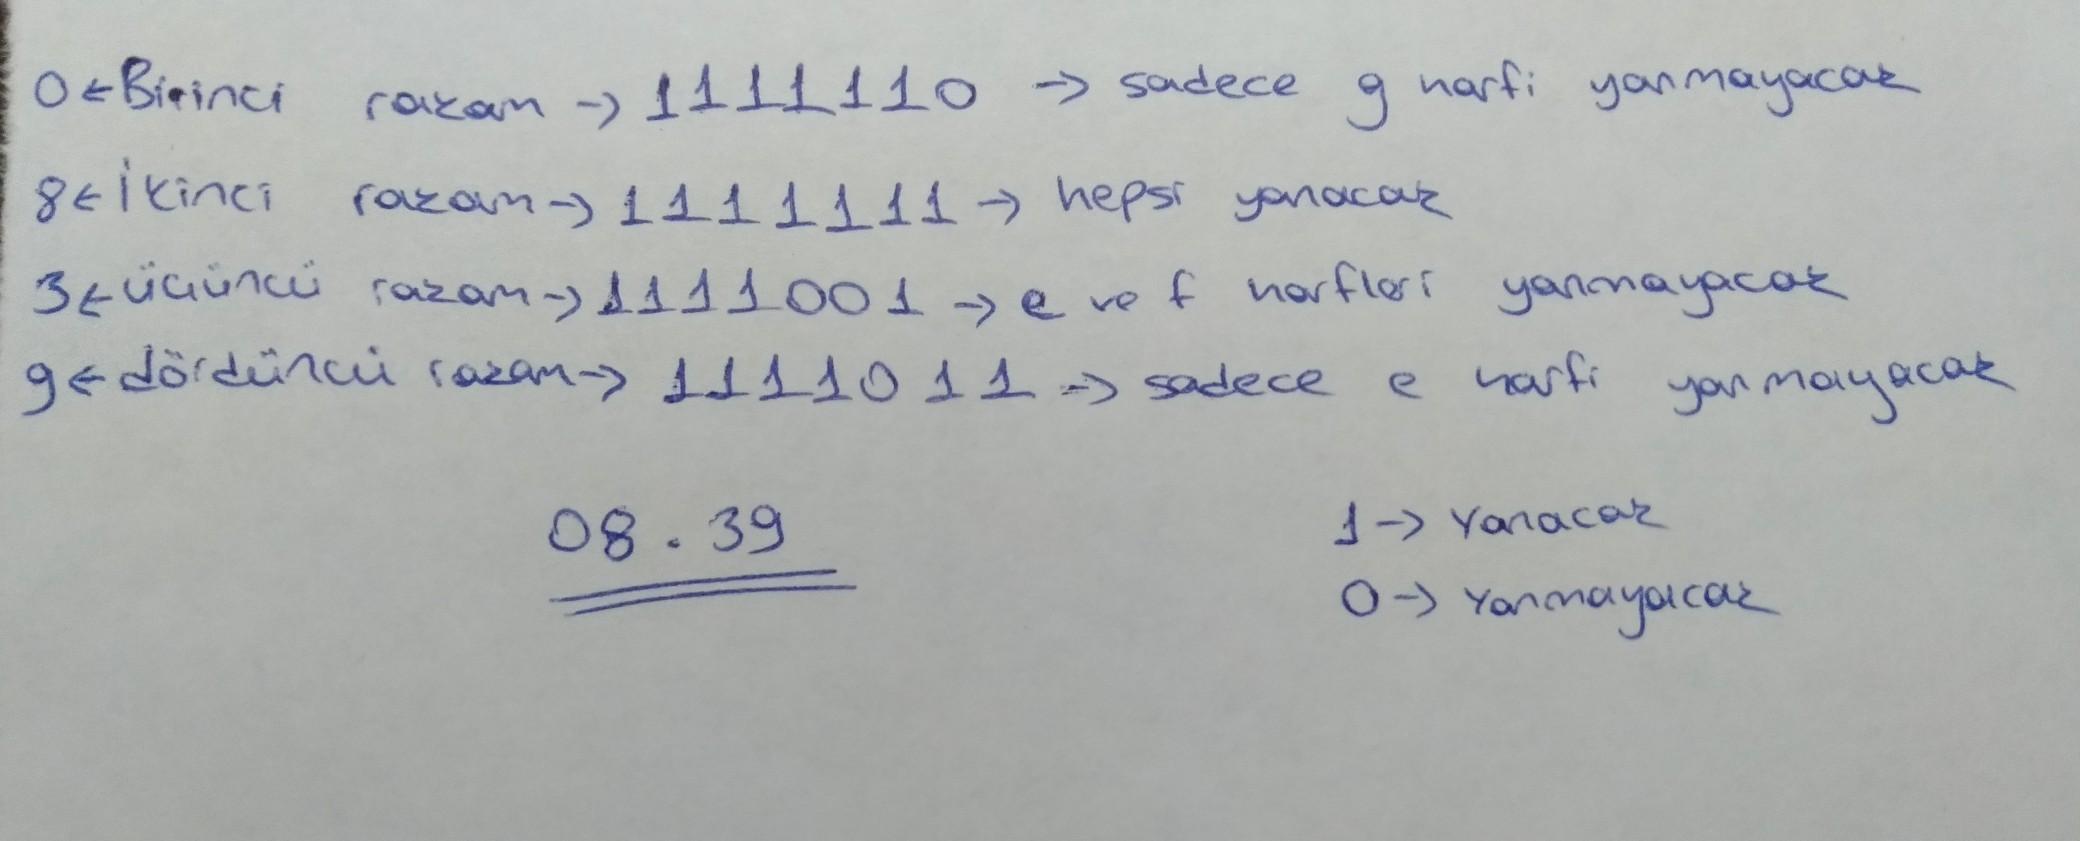 0 ← Birinci rakam → 1111110 → sadece g harfi yanmayacak
8 ← İkinci rakam → 1111111 → hepsi yanacak
3 ← üçüncü rakam → 1111001 → e ve f harfleri yanmayacak
9 ← dördüncü rakam → 1111011 → sadece e harfi yanmayacak
08.39
1 → Yanacak
0 → Yanmayacak